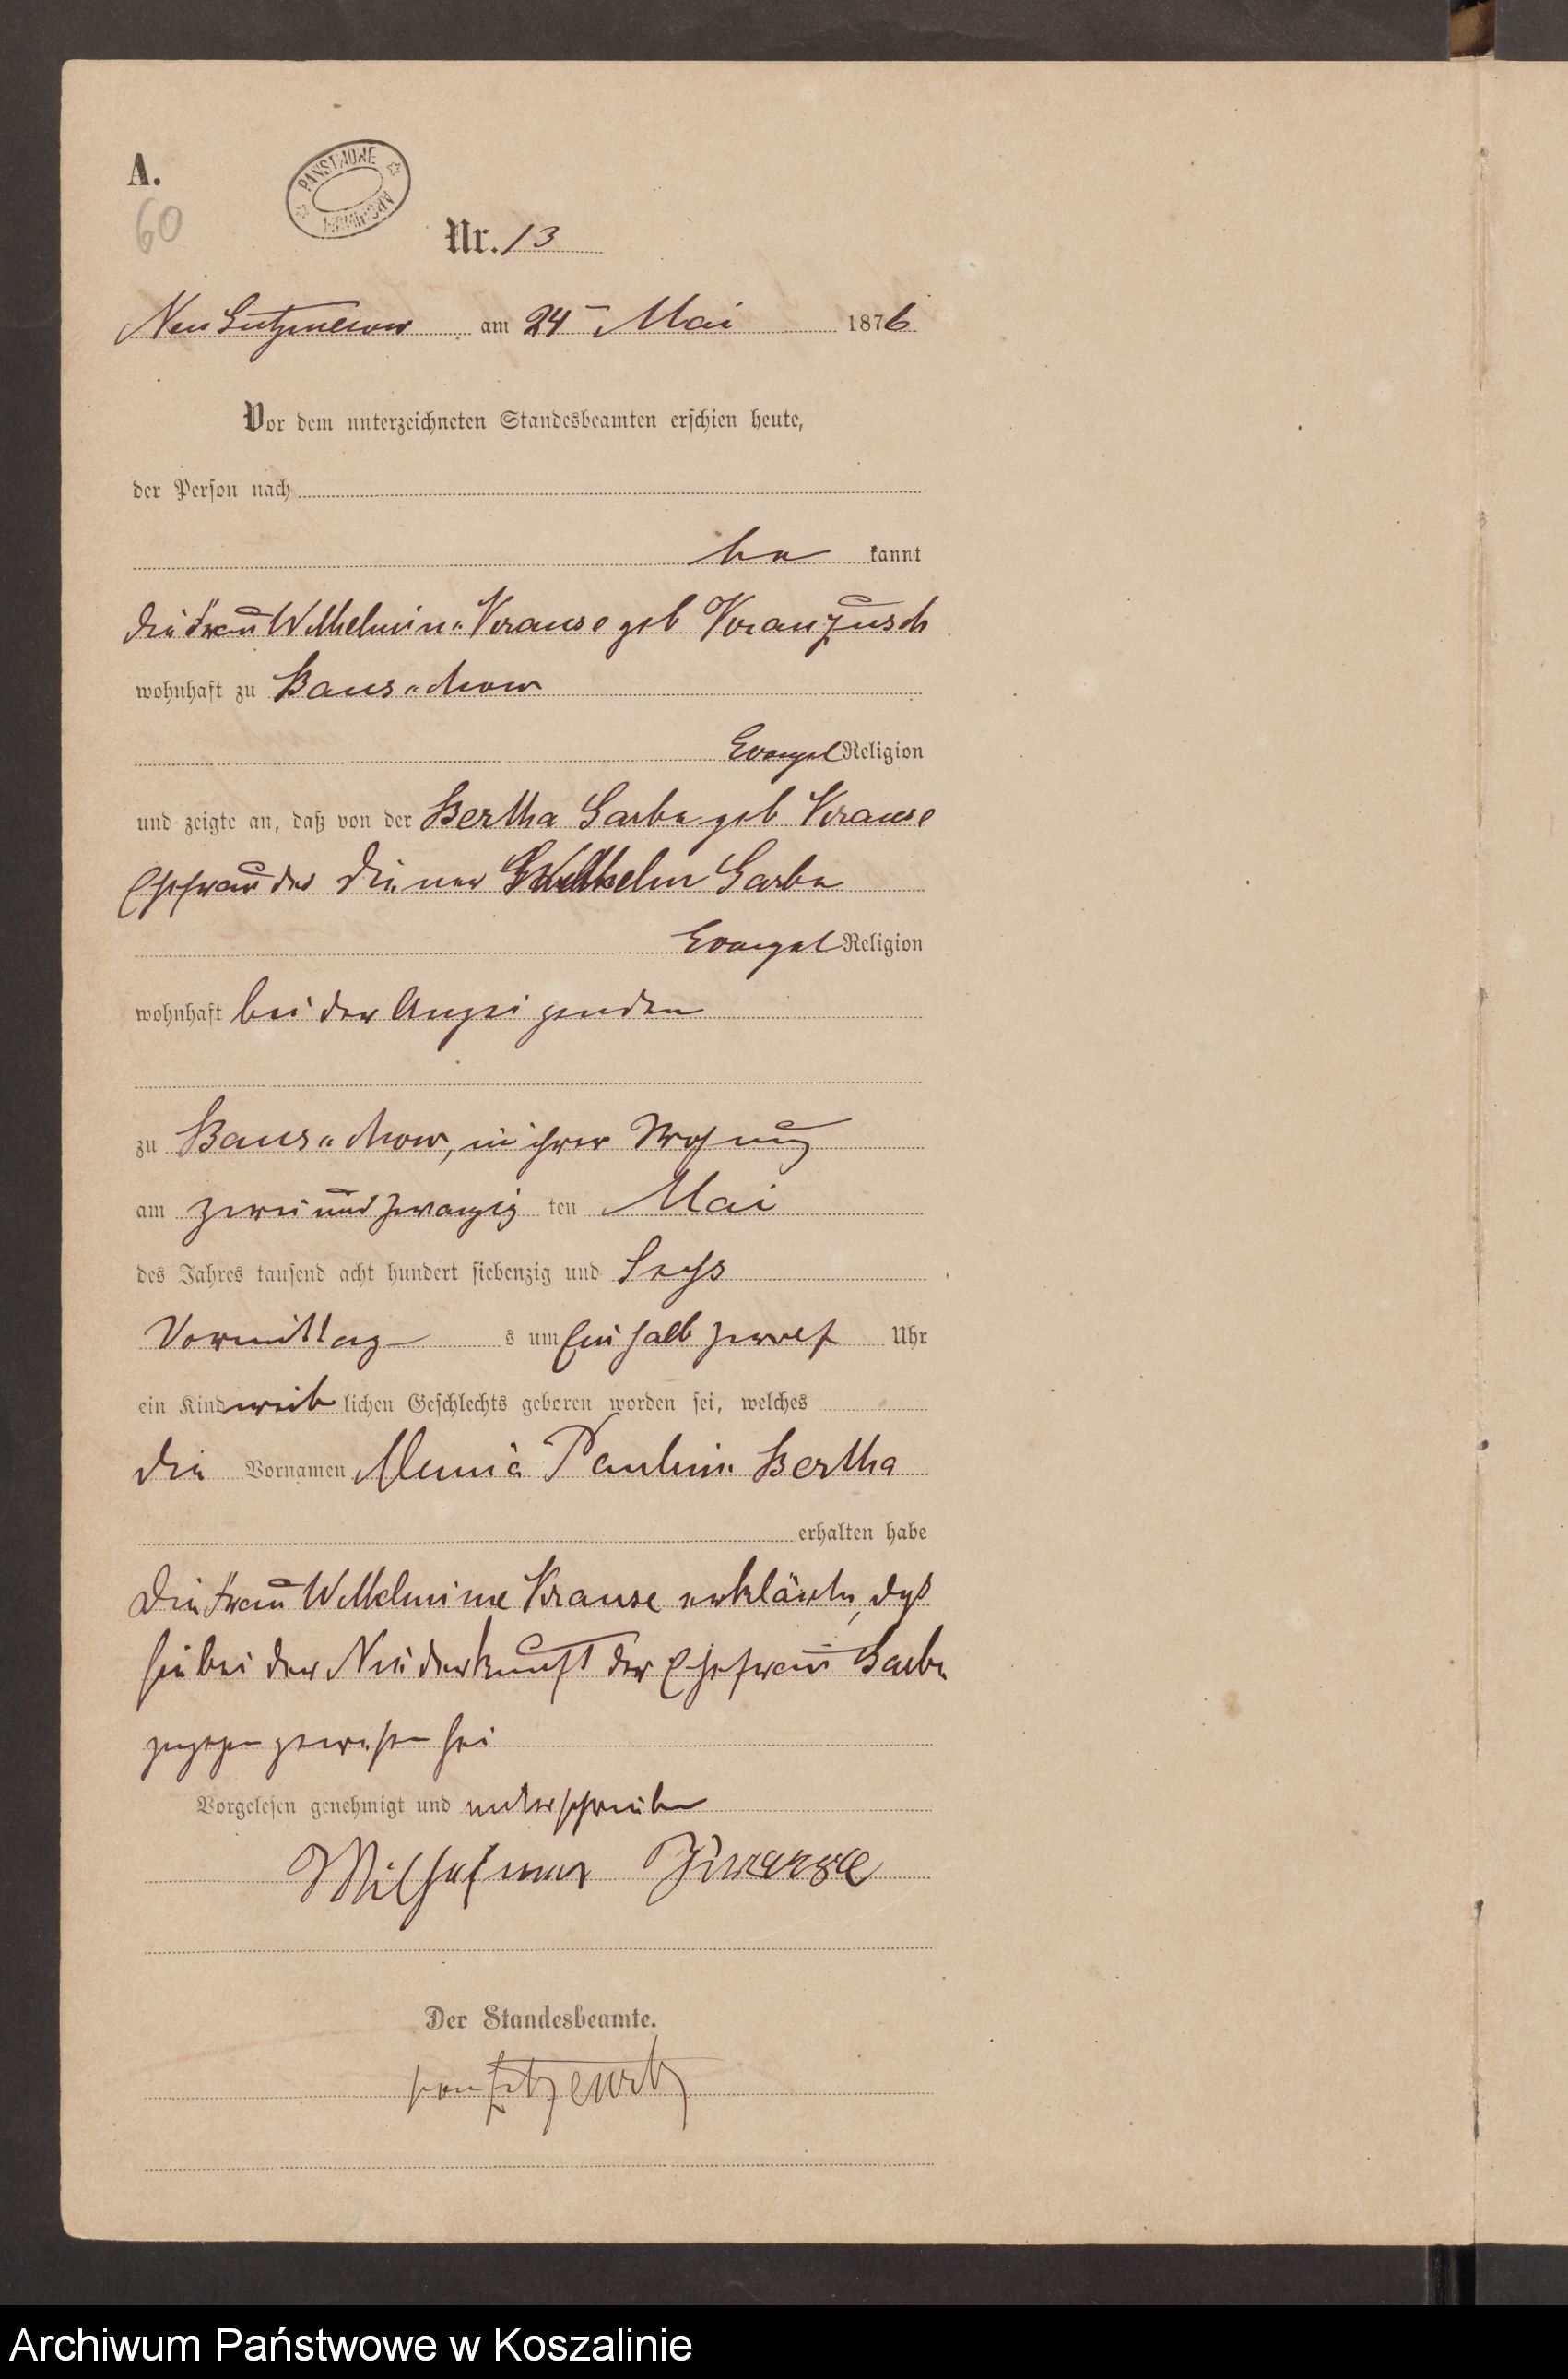 A.
60
PANSTWOWE ARCHIWUM
Nr. 13
Neu Gutzmerow am 24ten Mai 1876
Vor dem unterzeichneten Standesbeamten erschien heute,
der Person nach
be kannt
die Frau Wilhelmine Krause geb
wohnhaft zu
Evangel Religion
und zeigte an, daß von der Bertha Garbe geb Krause
Ehefrau des Diener Wilhelm Garbe
Evangel Religion
wohnhaft bei der Anzeigenden
zu in ihrer Wohnung
am zwei und zwanzig ten Mai
des Jahres tausend acht hundert siebenzig und Sechs
Vormittag s um Ein halb zwoelf Uhr
ein Kind weib lichen Geschlechts geboren worden sei, welches
die Vornamen Pauline Bertha
erhalten habe
Die Frau Wilhelmine Krause erklärte, daß
sie bei der Niederkunft der Ehefrau Garbe
zugegen gewesen sei
Vorgelesen genehmigt und unterschrieben
Wilhelmine Krause
Der Standesbeamte.
von Zitzewitz
Archiwum Państwowe w Koszalinie